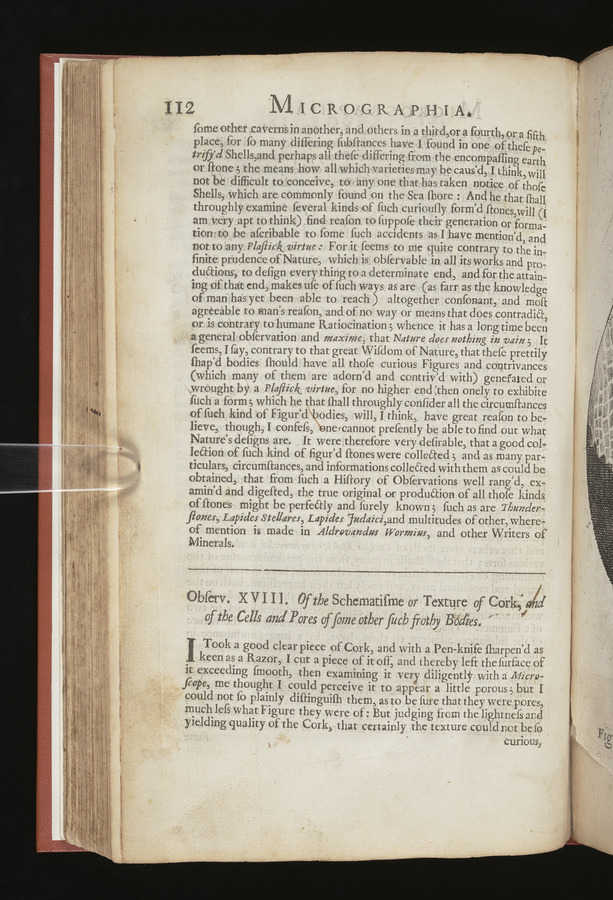 112 MICROGRAPHIA.
ſome other caverns in another, and others in a third, or a fourth, or a fifth
place, for ſo many differing ſubſtances have I found in one of theſe pe-
trify'd Shells, and perhaps all theſe differing from the encompaſſing earth
or ſtone; the means how all which varieties may be caus'd, I think, will
not be difficult to conceive, to any one that has taken notice of thoſe
Shells, which are commonly found on the Sea ſhore: And he that ſhall
throughly examine ſeveral kinds of ſuch curiouſly form'd ſtones, will (I
am very apt to think) find reaſon to ſuppoſe their generation or forma-
tion to be aſcribable to ſome ſuch accidents as I have mention'd, and
not to any Plaſtick virtue: For it ſeems to me quite contrary to the in-
finite prudence of Nature, which is obſervable in all its works and pro-
ductions, to deſign every thing to a determinate end, and for the attain-
ing of that end, makes uſe of ſuch ways as are (as farr as the knowledge
of man has yet been able to reach) altogether conſonant, and moſt
agreeable to man's reaſon, and of no way or means that does contradict,
or is contrary to humane Ratiocination; whence it has a long time been
a general obſervation and maxime, that Nature does nothing in vain; It
ſeems, I ſay, contrary to that great Wiſdom of Nature, that theſe prettily
ſhap'd bodies ſhould have all thoſe curious Figures and contrivances
(which many of them are adorn'd and contriv'd with) generated or
wrought by a Plaſtick virtue, for no higher end then onely to exhibite
ſuch a form; which he that ſhall throughly conſider all the circumſtances
of ſuch kind of Figur'd bodies, will, I think, have great reaſon to be-
lieve, though, I confeſs, one cannot preſently be able to find out what
Nature's deſigns are. It were therefore very deſirable, that a good col-
lection of ſuch kind of figur'd ſtones were collected; and as many par-
ticulars, circumſtances, and informations collected with them as could be
obtained, that from ſuch a Hiſtory of Obſervations well rang'd, ex-
amin'd and digeſted, the true original or production of all thoſe kinds
of ſtones might be perfectly and ſurely known; ſuch as are Thunder-
ſtones, Lapides Stellares, Lapides Judaici, and multitudes of other, where-
of mention is made in Aldrovandus Wormius, and other Writers of
Minerals.
Obſerv. XVIII. Of the Schematiſme or Texture of Cork, and
of the Cells and Pores of ſome other ſuch frothy Bodies.
I Took a good clear piece of Cork, and with a Pen-knife ſharpen'd as
keen as a Razor, I cut a piece of it off, and thereby left the ſurface of
it exceeding ſmooth, then examining it very diligently with a Micro-
ſcope, me thought I could perceive it to appear a little porous; but I
could not ſo plainly diſtinguiſh them, as to be ſure that they were pores,
much leſs what Figure they were of: But judging from the lightneſs and
yielding quality of the Cork, that certainly the texture could not be ſo
curious,
Fig